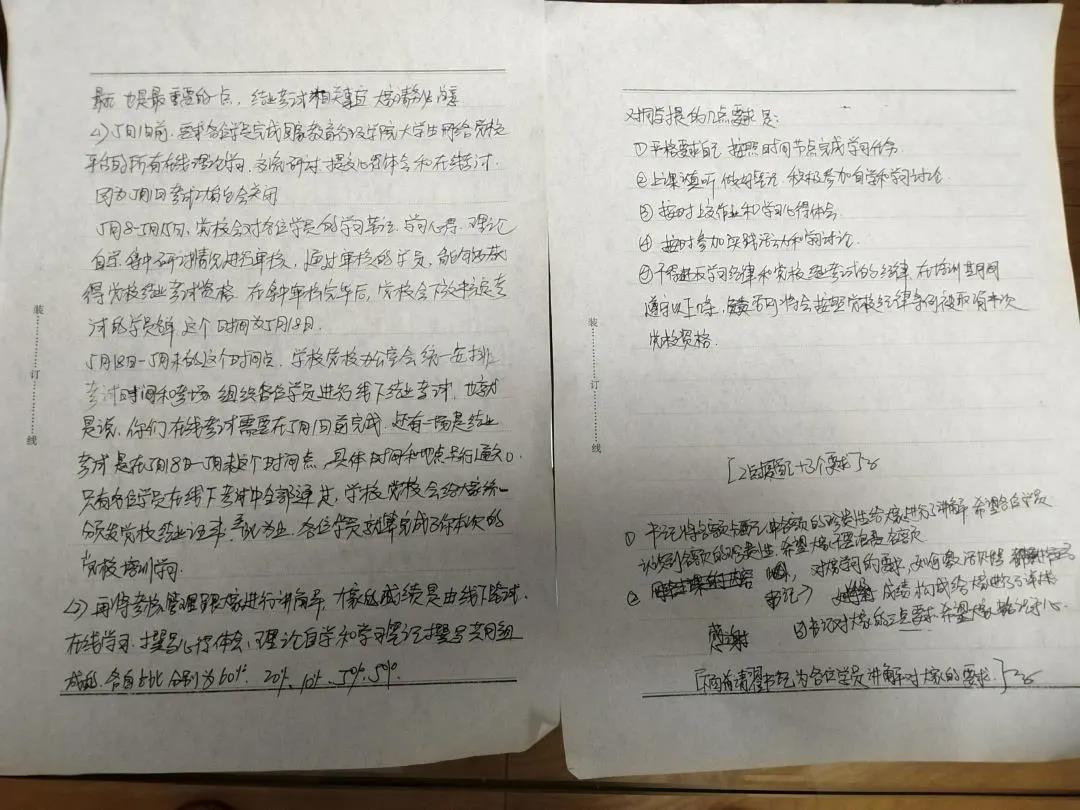 最后 也是最重要的一点，结业考试相关事宜 大家请务必注意
1）5月1日前，要求各位学员完成国家教育行政学院大学生网络党校
平台的所有在线理论学习、交流研讨、提交心得体会和在线考试.
因为5月1日考试功能会关闭
5月8-5月15日，党校会对各位学员的学习笔记、学习心得、理论
自学、集中研讨情况进行审核，通过审核的学员，能够获
得党校结业考试资格 在集中审核完毕后，党校会下发考
试的学员名单 这个时间为5月18日.
5月18日-5月末的这个时间点，学校党校办公室会统一安排
考试时间和考场 组织各位学员进行线下结业考试，也就
是说，你们在线考试需要在5月1日前完成 还有一场是结业
考试是在5月18日-5月末这个时间点，具体时间和地点另行通知。
只有各位学员在线下考试中全部通过，学校党校会给大家统一
分发党校结业证书，各位学员就算完成了你本次的
党校培训学习.
2）再得考核管理跟大家进行讲解，大家的成绩是由线下笔试、
在线学习、撰写心得体会、理论自学和学习笔记撰写共同组
成的. 各自占比分别为60%、20%、10%、5%、5%.
装
订
线
对同学提的几点要求是：
①严格要求自己 按照时间节点完成学习任务.
②上课认真听 做好笔记 积极参加自学和学习讨论.
③按时上交作业和学习心得体会.
④按时参加实践活动和学习讨论.
⑤不得违反学习纪律和党校结业考试的纪律 在培训其间
遵守以上5条，否则将会按照党校纪律条例被取消本次
党校资格.
装
订
线
①书记将名额的珍贵性给大家进行了讲解 希望各位学员
认识到名额的珍贵性，希望大家不要浪费名额
② 对大家学习的要求，
书记 成绩构成给大家进行了讲解
感谢 书记对大家的三点要求 希望大家
[下面有请 书记为各位学员讲解对大家的要求.]